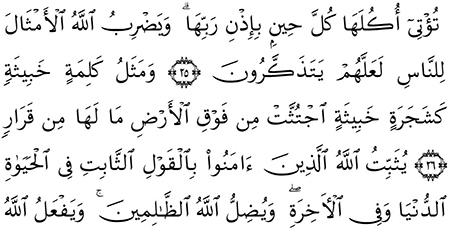 تُؤۡتِيٓ أُكُلَهَا كُلَّ حِينِۭ بِإِذۡنِ رَبِّهَاۗ وَيَضۡرِبُ ٱللَّهُ ٱلۡأَمۡثَالَ
لِلنَّاسِ لَعَلَّهُمۡ يَتَذَكَّرُونَ ٢٥ وَمَثَلُ كَلِمَةٍ خَبِيثَةٖ
كَشَجَرَةٍ خَبِيثَةٍ ٱجۡتُثَّتۡ مِن فَوۡقِ ٱلۡأَرۡضِ مَا لَهَا مِن قَرَارٖ
٢٦ يُثَبِّتُ ٱللَّهُ ٱلَّذِينَ ءَامَنُواْ بِٱلۡقَوۡلِ ٱلثَّابِتِ فِي ٱلۡحَيَوٰةِ
ٱلدُّنۡيَا وَفِي ٱلۡأٓخِرَةِۖ وَيُضِلُّ ٱللَّهُ ٱلظَّٰلِمِينَۚ وَيَفۡعَلُ ٱللَّهُ